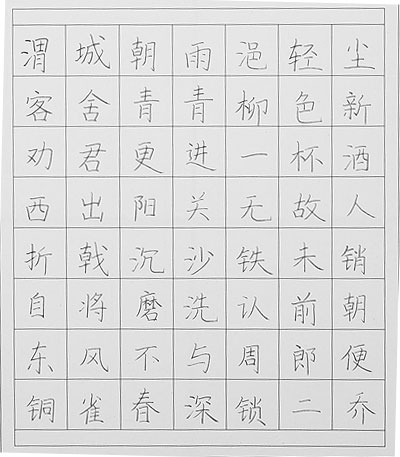 渭城朝雨浥轻尘
客舍青青柳色新
劝君更进一杯酒
西出阳关无故人
折戟沉沙铁未销
自将磨洗认前朝
东风不与周郎便
铜雀春深锁二乔